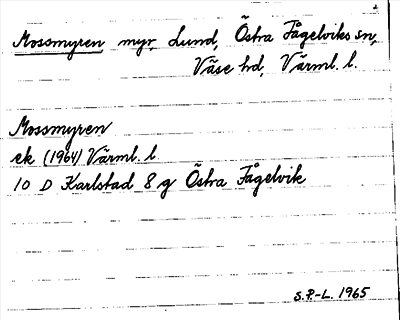 Mossmyren myr, Lund, Östra Fågelviks sn,
Väse hd, Värml. l.
Mossmyren
ek (1964) Värml. l.
10 D Karlstad 8 g Östra Fågelvik
S.P.-L. 1965